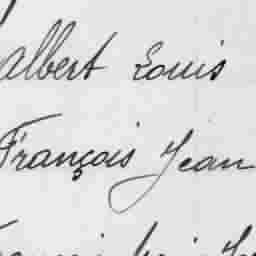 albert Louis
François Jean